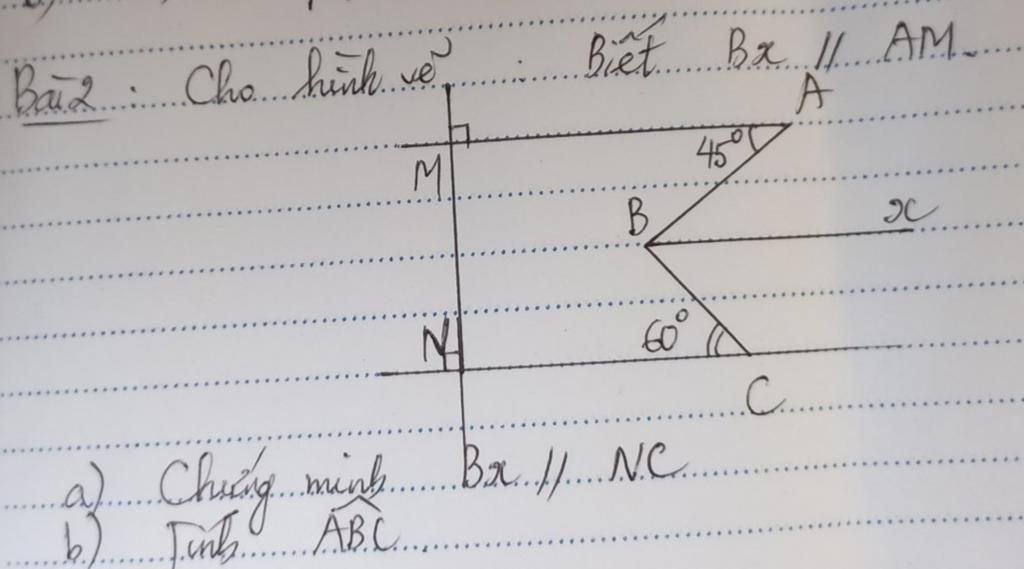 Bài 2 : Cho hình vẽ : Biết Bx // AM.
A
M
45°
B
x
N
60°
C
a) Chứng minh Bx // NC
b) Tính ABC